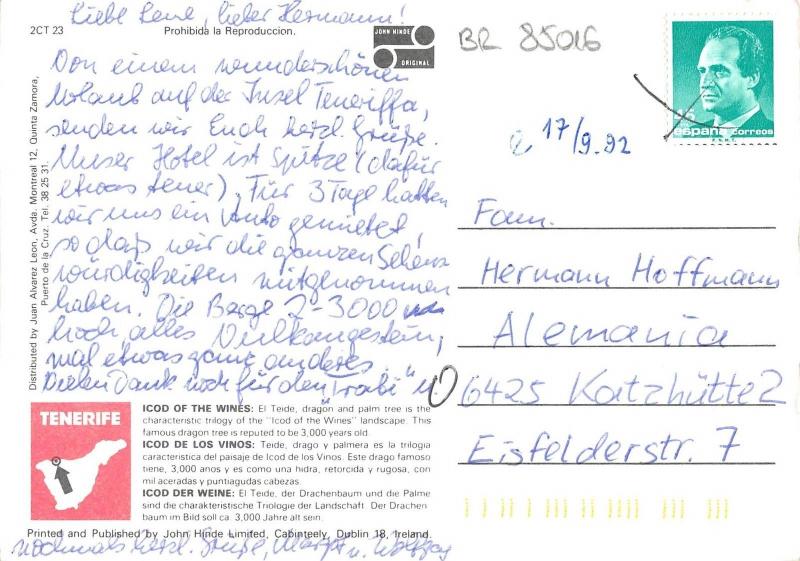 Liebe Lene, lieber Hermann!
2CT 23
Prohibida la Reproduccion.
JOHN HINDE
ORIGINAL
BR 85016
Von einem wunderschönen
Urlaub auf der Insel Teneriffa,
senden wir Euch herzl. Grüße.
Unser Hotel ist Spitze (dafür
etwas teuer). Für 3 Tage hatten
wir uns ein Auto gemietet,
so daß wir die ganzen Sehens
würdigkeiten mitgenommen
haben. Die Berge 2-3000 m
hoch alles Vulkangestein,
mal etwas ganz anderes.
Vielen Dank noch für den "Trabi" u.
nochmals herzl. Grüße, Margit u. Wolfgang
Distributed by Juan Alvarez Leon, Avda. Montreal 12, Quinta Zamora,
Puerto de la Cruz. Tel. 38 25 31.
TENERIFE
ICOD OF THE WINES: El Teide, dragon and palm tree is the
characteristic trilogy of the "Icod of the Wines" landscape. This
famous dragon tree is reputed to be 3,000 years old.
ICOD DE LOS VINOS: Teide, drago y palmera es la trilogia
caracteristica del paisaje de Icod de los Vinos. Este drago famoso
tiene, 3,000 anos y es como una hidra, retorcida y rugosa, con
mil aceradas y puntiagudas cabezas.
ICOD DER WEINE: El Teide, der Drachenbaum und die Palme
sind die charakteristische Triologie der Landschaft. Der Drachen
baum im Bild soll ca. 3,000 Jahre alt sein.
Printed and Published by John Hinde Limited, Cabinteely, Dublin 18, Ireland.
españa correos
F.N.M.T.
17/9.92
Fam.
Hermann Hoffmann
Alemania
6425 Katzhütte 2
Eisfelderstr. 7